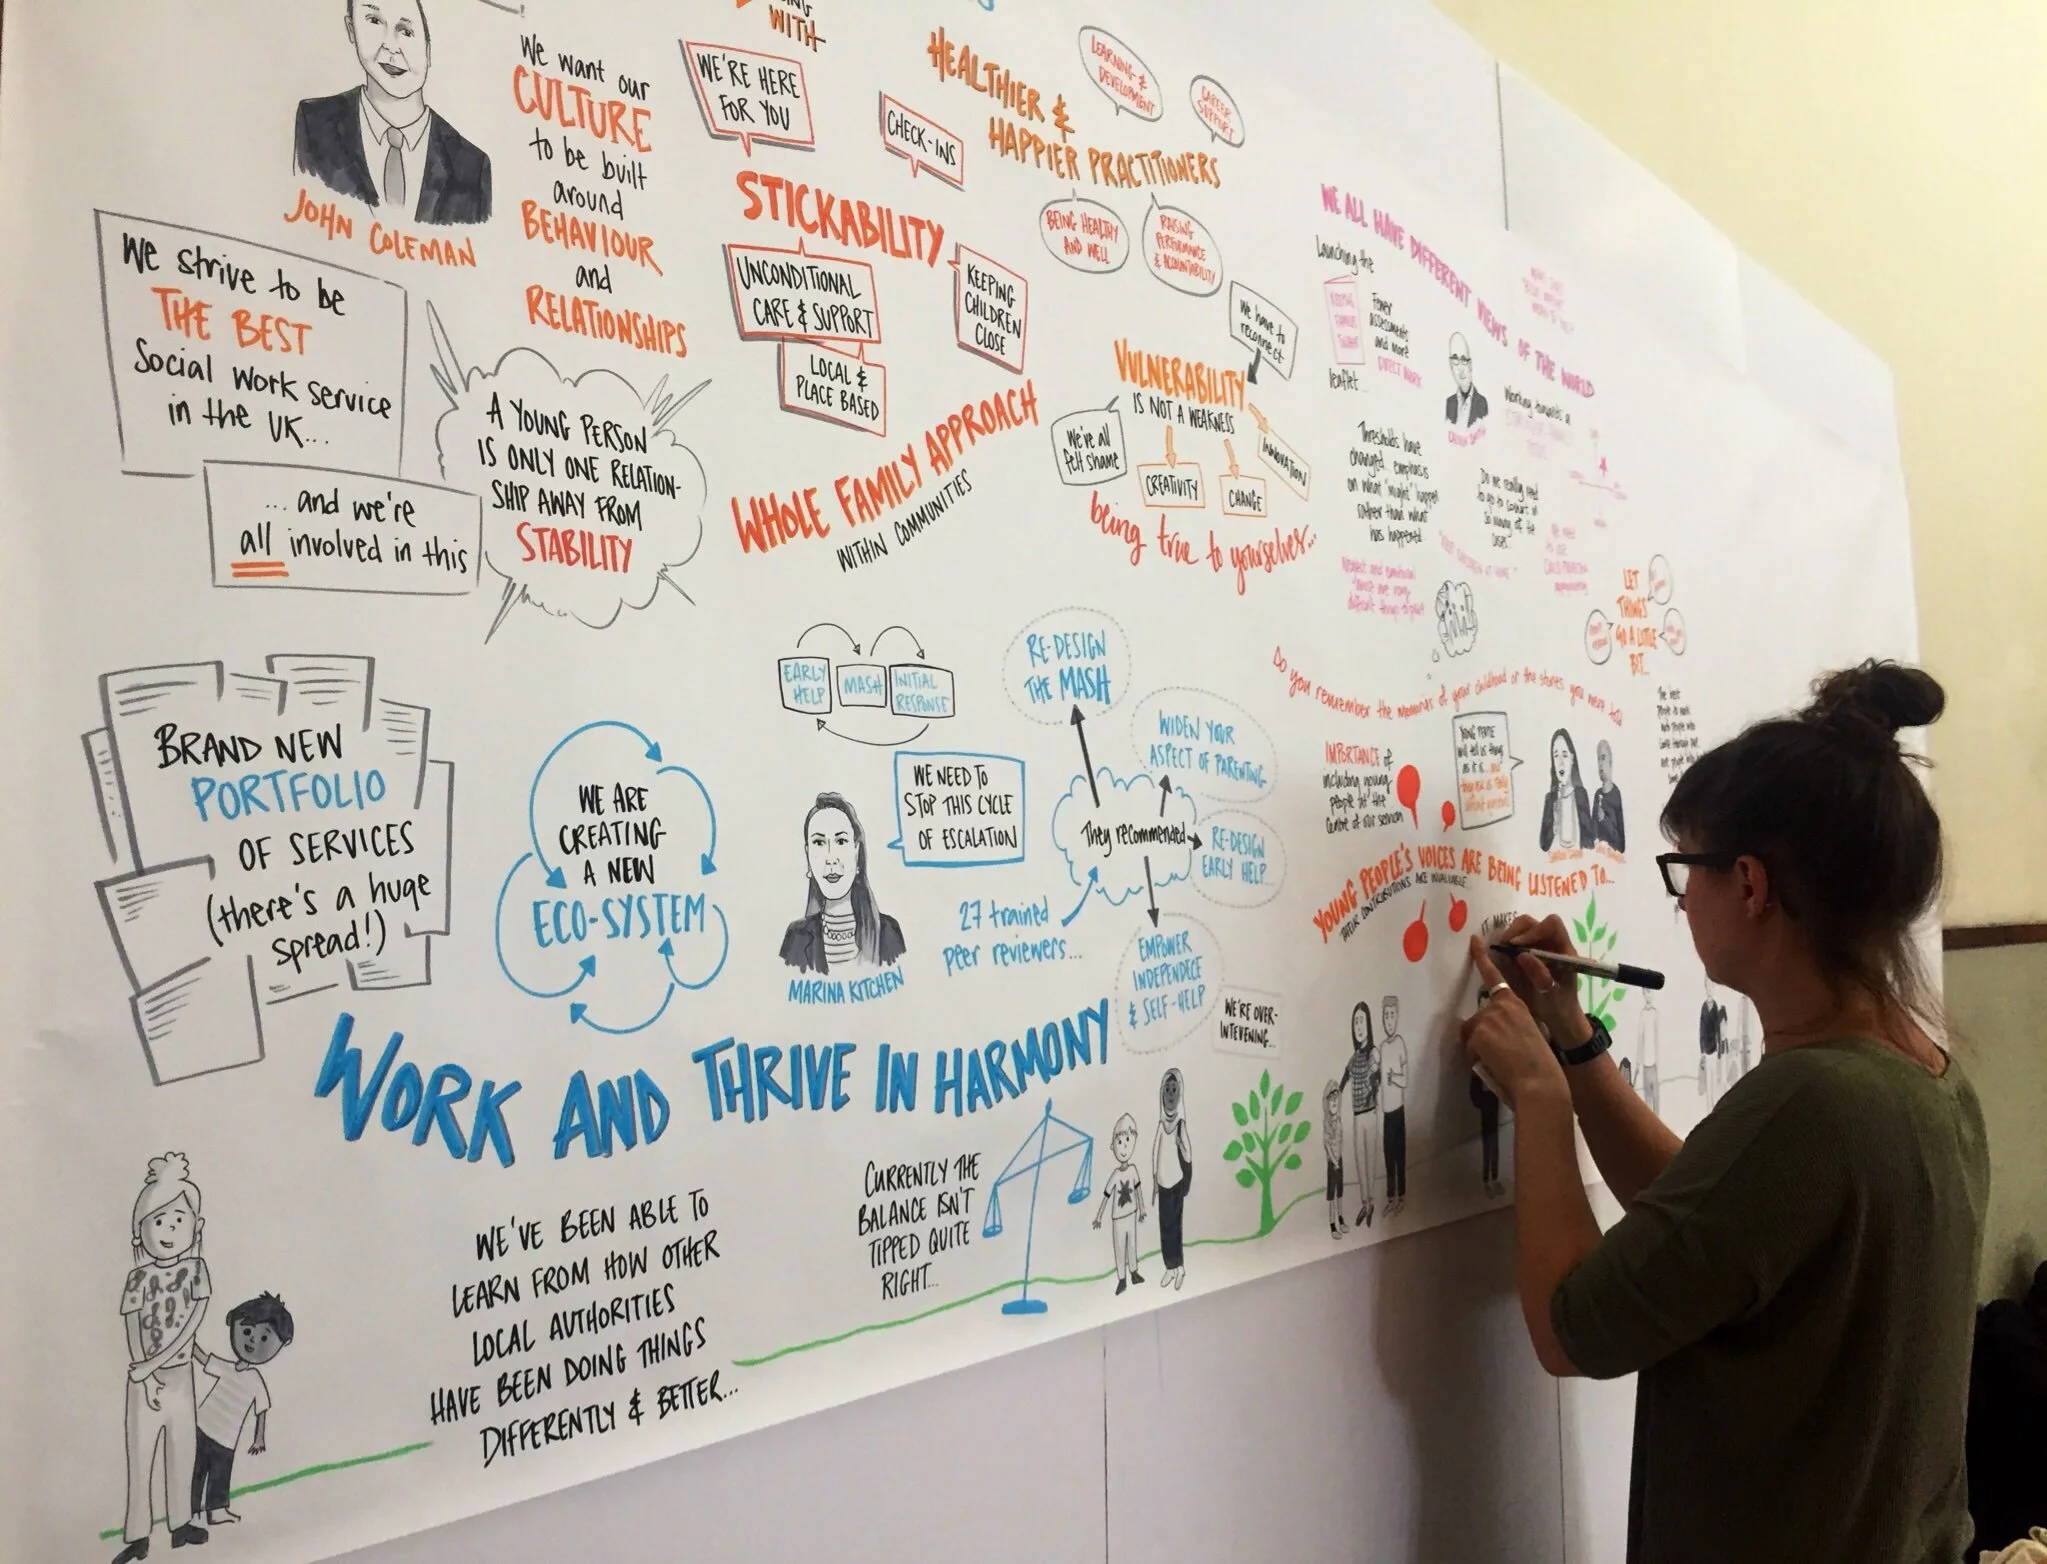 WITH
We want our
CULTURE
to be built
around
BEHAVIOUR
and
RELATIONSHIPS
JOHN COLEMAN
We strive to be
THE BEST
Social Work service
in the UK...
...and we're
all involved in this
A YOUNG PERSON
IS ONLY ONE RELATION-
SHIP AWAY FROM
STABILITY
WE'RE HERE
FOR YOU
CHECK-INS
STICKABILITY
UNCONDITIONAL
CARE & SUPPORT
KEEPING
CHILDREN
CLOSE
LOCAL &
PLACE BASED
WHOLE FAMILY APPROACH
WITHIN COMMUNITIES
HEALTHIER &
HAPPIER PRACTITIONERS
LEARNING &
DEVELOPMENT
CAREER
SUPPORT
BEING HEALTHY
AND WELL
RAISING
PERFORMANCE
& ACCOUNTABILITY
We have to
reconnect
VULNERABILITY
IS NOT A WEAKNESS
We've all
felt shame
CREATIVITY
CHANGE
INNOVATION
being true to yourselves...
WE ALL HAVE DIFFERENT VIEWS OF THE WORLD
Launching the
leaflet...
Fewer
assessments
and more
DIRECT WORK
Working towards a
Thresholds have
changed.. emphasis
on what 'might' happen
rather than what
has happened
Do we really need
to go to court in
so many of the
cases?
LET
THINGS
GO A LITTLE
BIT...
Do you remember the memories of your childhood or the stories you were told
BRAND NEW
PORTFOLIO
OF SERVICES
(there's a huge
spread!)
WE ARE
CREATING
A NEW
ECO-SYSTEM
EARLY
HELP
MASH
INITIAL
RESPONSE
MARINA KITCHEN
WE NEED TO
STOP THIS CYCLE
OF ESCALATION
27 trained
peer reviewers...
They recommended
RE-DESIGN
THE MASH
WIDEN YOUR
ASPECT OF PARENTING
RE-DESIGN
EARLY HELP...
EMPOWER
INDEPENDECE
& SELF-HELP
WE'RE OVER-
INTEVENING...
IMPORTANCE of
including young
people at the
Centre of our service
YOUNG PEOPLE
will tell us things
as it is.. and
YOUNG PEOPLE'S VOICES ARE BEING LISTENED TO...
THEIR CONTRIBUTIONS ARE INVALUABLE
IT MAKES
WORK AND THRIVE IN HARMONY
WE'VE BEEN ABLE TO
LEARN FROM HOW OTHER
LOCAL AUTHORITIES
HAVE BEEN DOING THINGS
DIFFERENTLY & BETTER...
CURRENTLY THE
BALANCE ISN'T
TIPPED QUITE
RIGHT...